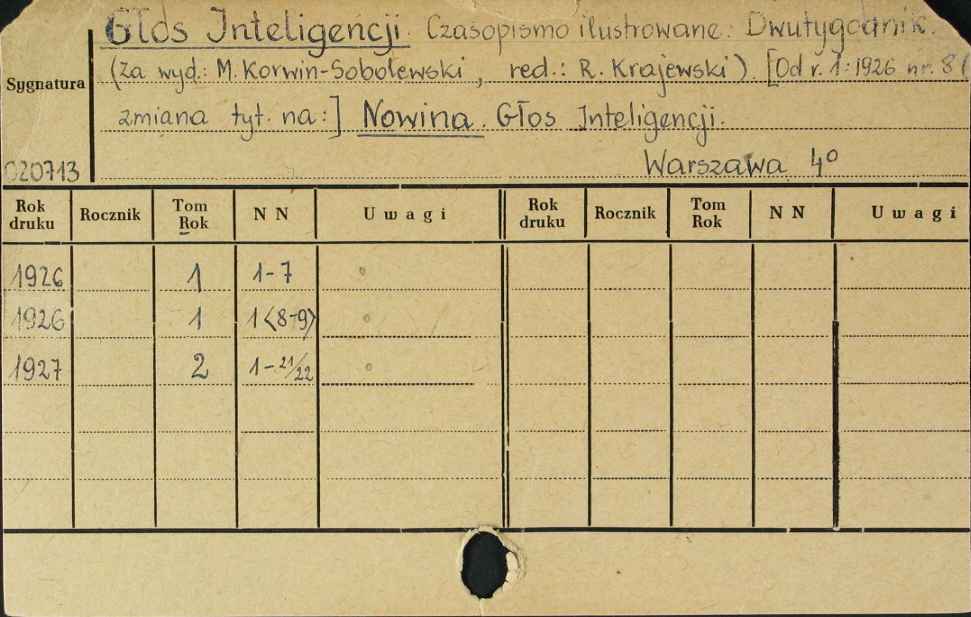 Głos Inteligencji. Czasopismo ilustrowane. Dwutygodnik.
(Za wyd.: M. Korwin-Sobolewski, red.: R. Krajewski). [Od r. 1:1926 nr. 8 (
Sygnatura
zmiana tyt. na:] Nowina. Głos Inteligencji.
020713 Warszawa 4°
Rok druku Rocznik Tom Rok N N Uwagi Rok druku Rocznik Tom Rok N N Uwagi
1926 1 1-7
1926 1 1<8-9>
1927 2 1-21/22